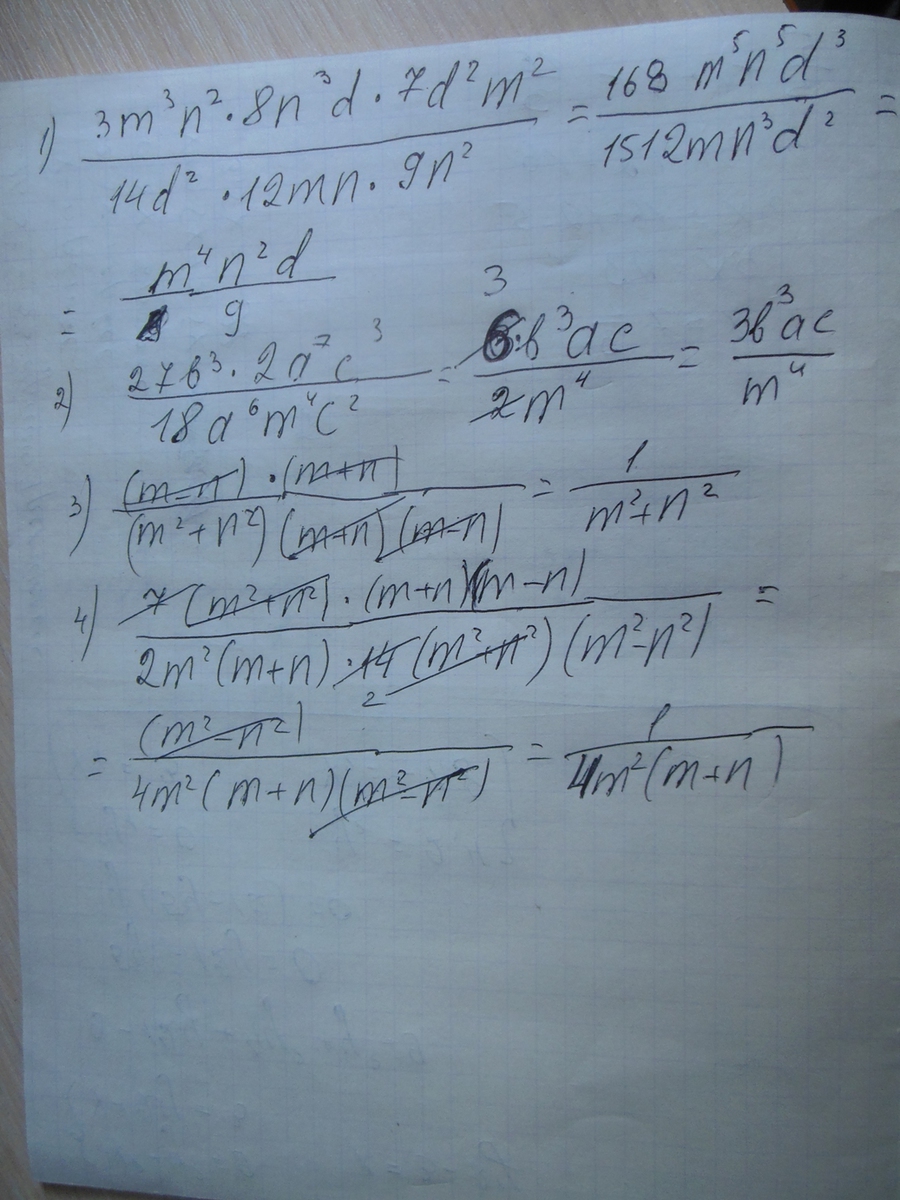 1) (3m³n²·8n³d·7d²m²)/(14d²·12mn·9n²) = (168 m⁵n⁵d³)/(1512mn³d²) =
= (m⁴n²d)/9
2) (27b³·2a⁷c³)/(18a⁶m⁴c²) = (6b³ac)/(2m⁴) = (3b³ac)/(m⁴)
3) ((m-n)·(m+n))/((m²+n²)(m+n)(m-n)) = 1/(m²+n²)
4) (7(m²+n²)·(m+n)(m-n))/(2m²(m+n)·14(m²+n²)(m²-n²)) =
= (m²-n²)/(4m²(m+n)(m²-n²)) = 1/(4m²(m+n))